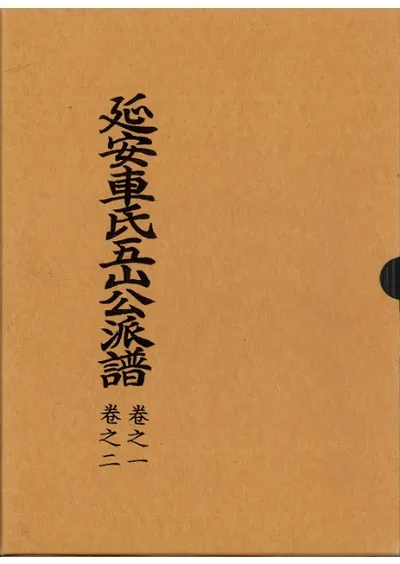 延安車氏五山公派譜
卷之一
卷之二